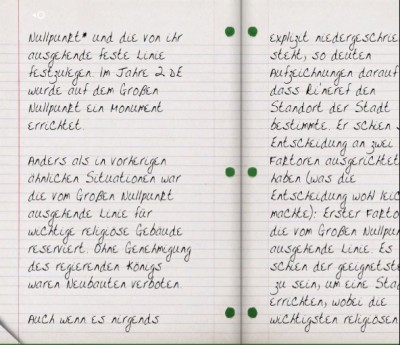 Nullpunkt* und die von ihr
ausgehende feste Linie
festzulegen. Im Jahre 2 DE
wurde auf dem Großen
Nullpunkt ein Monument
errichtet.
Anders als in vorherigen
ähnlichen Situationen war
die vom Großen Nullpunkt
ausgehende Linie für
wichtige religiöse Gebäude
reserviert. Ohne Genehmigung
des regierenden Königs
waren Neubauten verboten.
Auch wenn es nirgends
explizit niedergeschrie
steht, so deuten
Aufzeichnungen darauf
dass Ri'neref den
Standort der Stadt
bestimmte. Er schien s
Entscheidung an zwei
Faktoren ausgerichtet
haben (was die
Entscheidung wohl leic
machte): Erster Fakto
die vom Großen Nullpun
ausgehende Linie. Es
schien der geeignetste
zu sein, um eine Stad
errichten, wobei die
wichtigsten religiösen